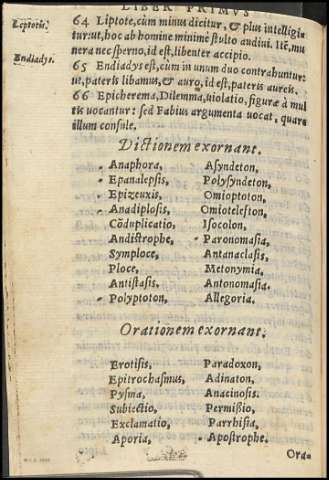 LIBER PRIMVS
Leptotis.
64 Liptote, cùm minus dicitur, & plus intelligi=
tur: ut, hoc ab homine minimè stulto audiui. Itē, mu
nera nec sperno, id est, libenter accipio.
Endiadys.
65 Endiadys est, cùm in unum duo contrahuntur:
ut, pateris libamus, & auro, id est, pateris aureis.
66 Epicherema, Dilemma, uiolatio, figuræ à mul
tis uocantur: sed Fabius argumenta uocat, quare
illum consule.
Dictionem exornant.
Anaphora, Asyndeton,
Epanalepsis, Polysyndeton,
Epizeuxis, Omioptoton,
Anadiplosis, Omioteleston,
Cōduplicatio, Isocolon,
Andistrophe, Paronomasia,
Symploce, Antanaclasis,
Ploce, Metonymia,
Antistasis, Antonomasia,
Polyptoton, Allegoria.
Orationem exornant.
Erotisis, Paradoxon,
Epitrochasmus, Adinaton,
Pysma, Anacinosis.
Subiectio, Permißio,
Exclamatio, Parrhisia,
Aporia, Apostrophe.
Ora=